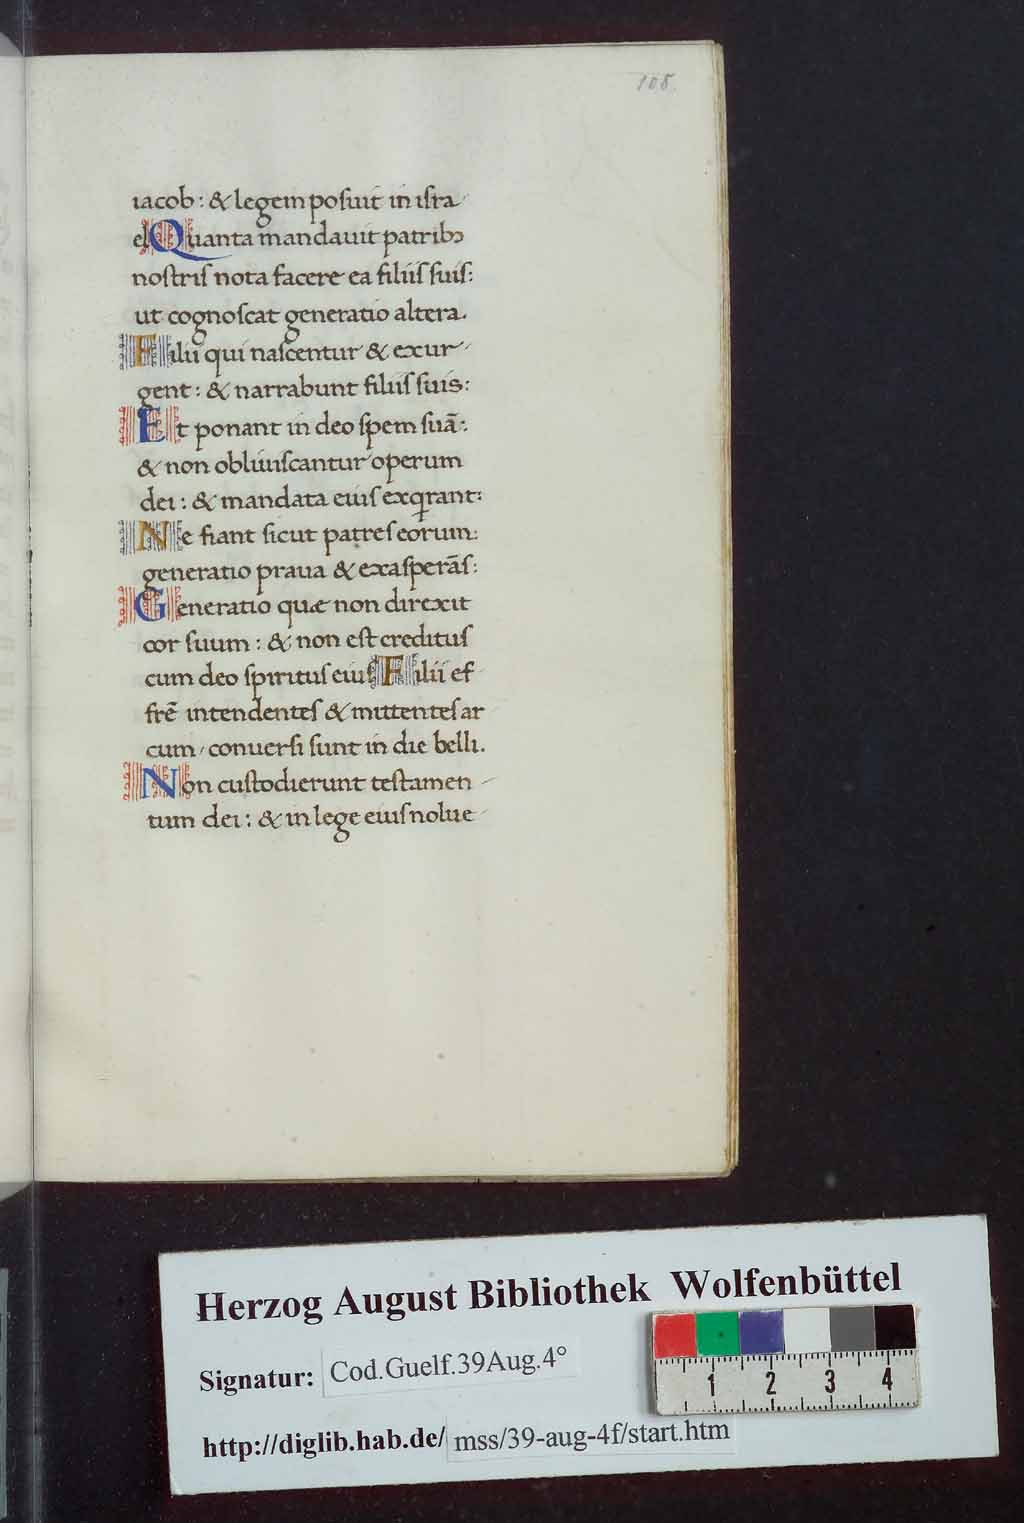 108.
iacob: & legem posuit in isra
el Quanta mandauit patribɔ
nostris nota facere ea filiis suis:
ut cognoscat generatio altera.
Filii qui nascentur & exur
gent: & narrabunt filiis suis:
Et ponant in deo spem suā:
& non obliuiscantur operum
dei: & mandata eius exqrant:
Ne fiant sicut patres eorum:
generatio praua & exasperās:
Generatio quæ non direxit
cor suum: & non est creditus
cum deo spiritus eius Filii ef
frē intendentes & mittentes ar
cum, conuersi sunt in die belli.
Non custodierunt testamen
tum dei: & in lege eius nolue
Herzog August Bibliothek Wolfenbüttel
Signatur: Cod.Guelf.39Aug.4°
1 2 3 4
http://diglib.hab.de/ mss/39-aug-4f/start.htm